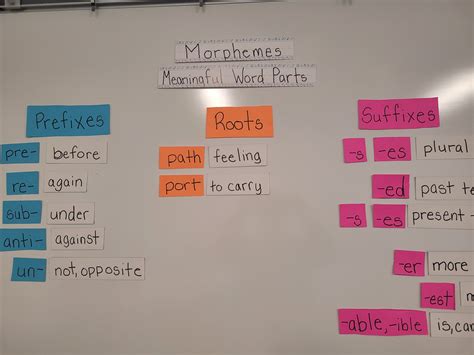 Morphemes
Meaningful Word Parts
Prefixes
pre- before
re- again
sub- under
anti- against
un- not, opposite
Roots
path feeling
port to carry
Suffixes
-s -es plural
-ed past te
-s -es present -
-er more
-est m
-able, -ible is, can